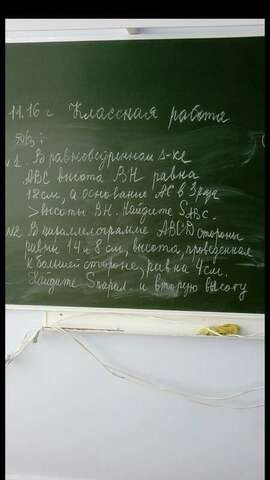 11.16 г Классная работа
№1. В равнобедренном Δ-ке
ABC высота BH равна
12 см, а основание AC в 3 раза
> высоты BH. Найдите SABC.
№2 В параллелограмме ABCD стороны
равны 14 и 8 см, высота, проведённая
к большей стороне, равна 4 см.
Найдите Sпарал. и вторую высоту